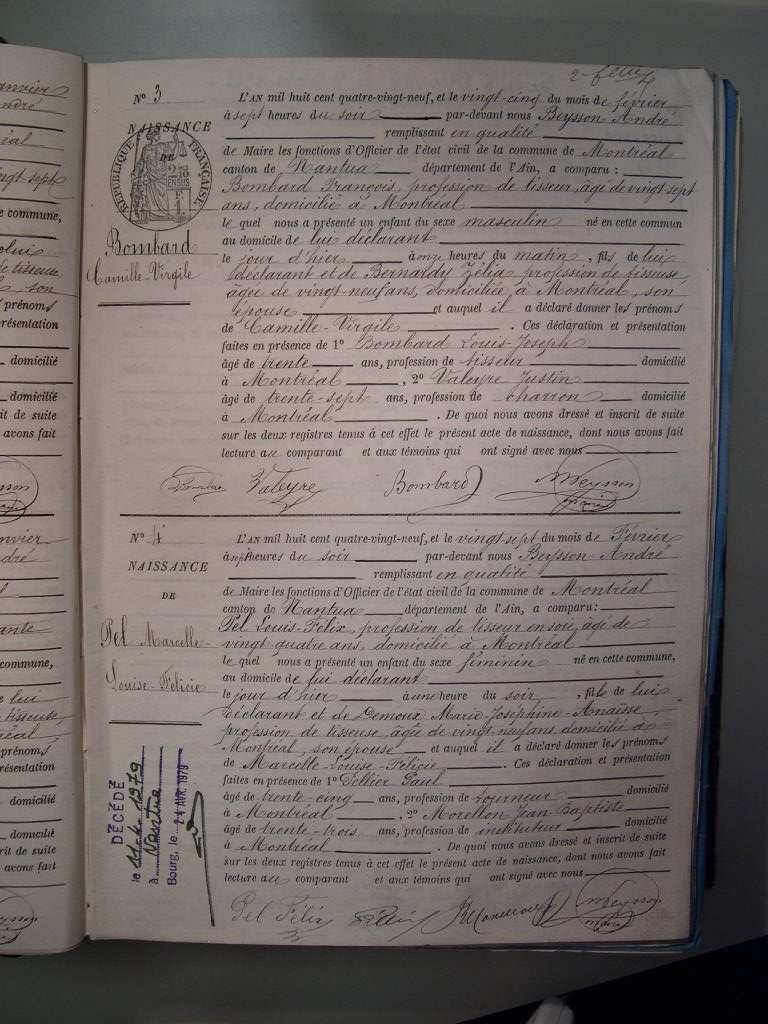 2e feuille
N° 3
NAISSANCE
DE
RÉPUBLIQUE FRANÇAISE
Bombard
Camille-Virgile
L'AN mil huit cent quatre-vingt-neuf, et le vingt-cinq du mois de février
à sept heures du soir par-devant nous Beysson André
remplissant en qualité
de Maire les fonctions d'Officier de l'état civil de la commune de Montréal
canton de Nantua département de l'Ain, a comparu :
Bombard François, profession de tisseur, âgé de vingt-sept
ans, domicilié à Montréal
le quel nous a présenté un enfant du sexe masculin né en cette commun
au domicile de lui déclarant
le jour d'hier à onze heures du matin, fils de lui
déclarant et de Bernardy Zélia, profession de tisseuse,
âgée de vingt-neuf ans, domiciliée à Montréal, son
épouse et auquel il a déclaré donner les prénoms
de Camille-Virgile. Ces déclaration et présentation
faites en présence de 1° Bombard Louis-Joseph
âgé de trente ans, profession de tisseur domicilié
à Montréal, 2° Valeyre Justin
âgé de trente-sept ans, profession de charron domicilié
à Montréal. De quoi nous avons dressé et inscrit de suite
sur les deux registres tenus à cet effet le présent acte de naissance, dont nous avons fait
lecture au comparant et aux témoins qui ont signé avec nous
Bombard Valeyre Bombard
N° 4
NAISSANCE
DE
Pel Marcelle-
Louise-Félicie
L'AN mil huit cent quatre-vingt-neuf, et le vingt-sept du mois de Février
à sept heures du soir par-devant nous Beysson André
remplissant en qualité
de Maire les fonctions d'Officier de l'état civil de la commune de Montréal
canton de Nantua département de l'Ain, a comparu :
Pel Louis-Félix, profession de tisseur en soie, âgé de
vingt quatre ans, domicilié à Montréal
le quel nous a présenté un enfant du sexe féminin né en cette commune,
au domicile de lui déclarant
le jour d'hier à une heure du soir, fille de lui
déclarant et de Demoux Marie-Joséphine-Anaïsse,
profession de tisseuse, âgée de vingt-neuf ans, domiciliée à
Montréal, son épouse et auquel il a déclaré donner les prénoms
de Marcelle-Louise-Félicie. Ces déclaration et présentation
faites en présence de 1° Tellier Paul
âgé de trente-cinq ans, profession de tourneur domicilié
à Montréal, 2° Morellon Jean-Baptiste
âgé de trente-trois ans, profession de instituteur domicilié
à Montréal. De quoi nous avons dressé et inscrit de suite
sur les deux registres tenus à cet effet le présent acte de naissance, dont nous avons fait
lecture au comparant et aux témoins qui ont signé avec nous
Pel Félix
DÉCÉDÉ
le 1979
à Nantua
Bourg, le 24 AVR. 1979